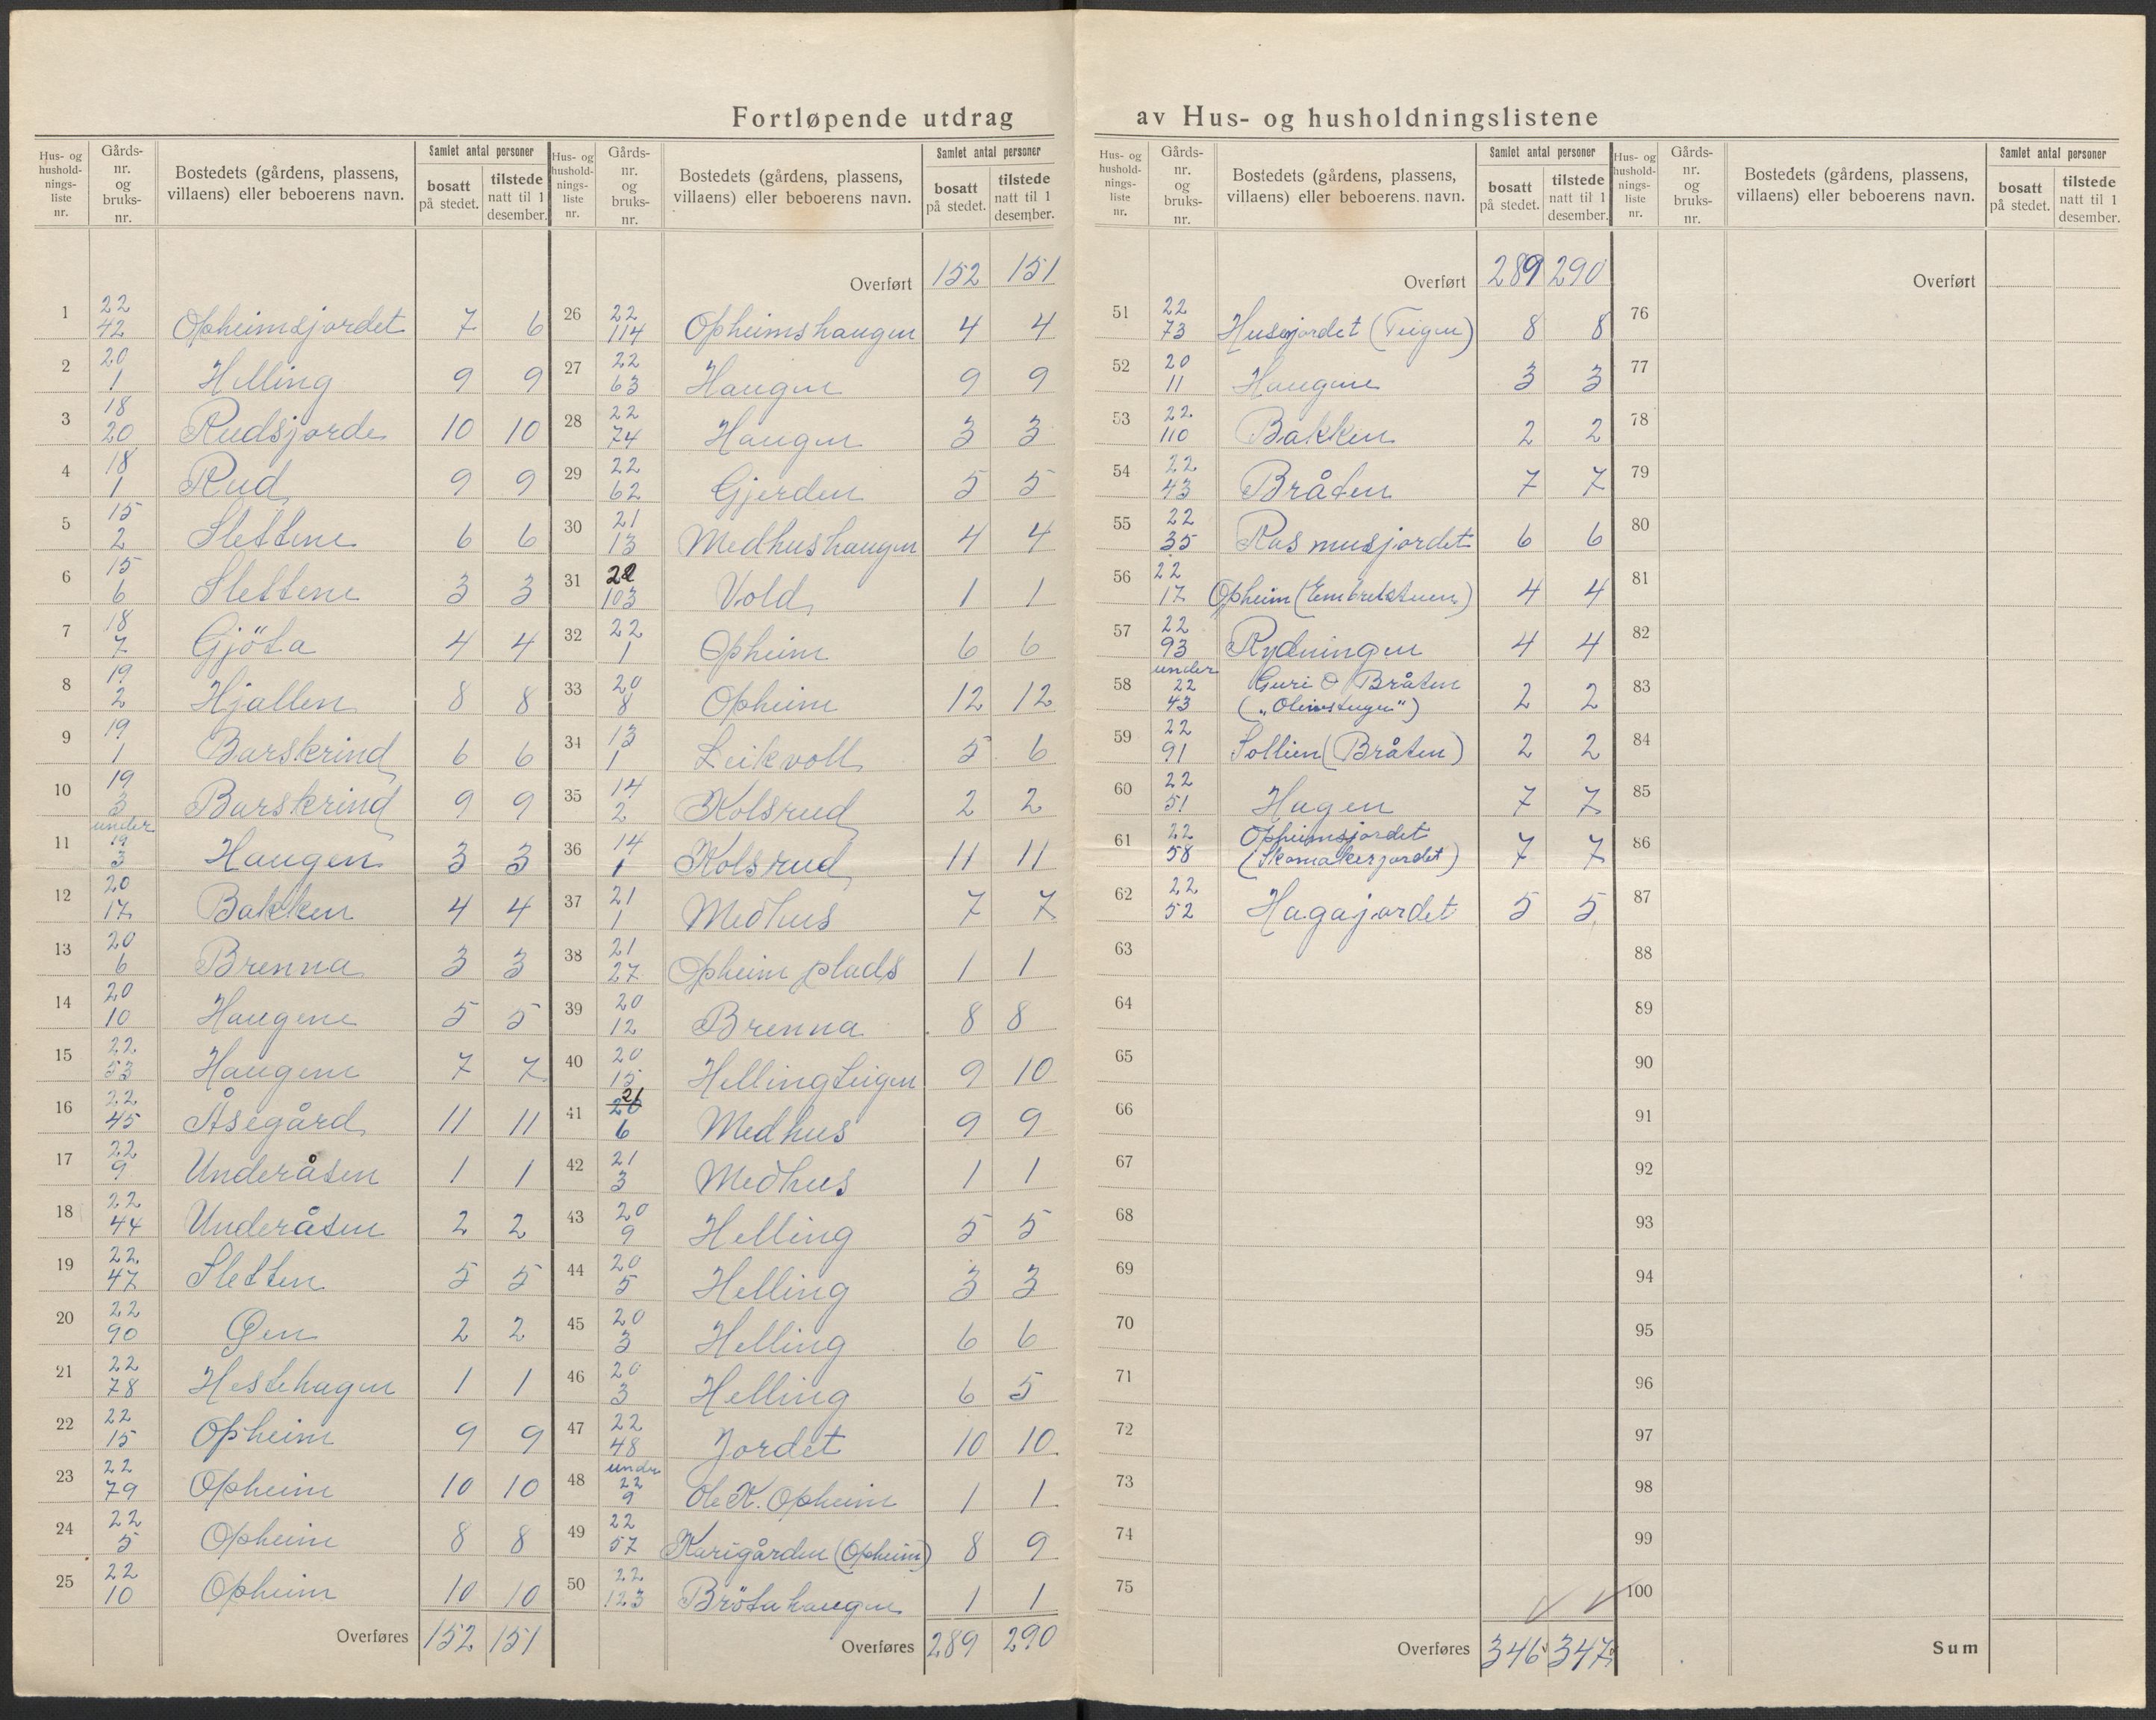 Fortløpende utdrag av Hus- og husholdningslistene
Hus- og hushold-nings-liste nr. | Gårds-nr. og bruks-nr. | Bostedets (gårdens, plassens, villaens) eller beboerens navn. | Samlet antal personer | bosatt på stedet. | tilstede natt til 1 desember.
1 22/42 Opheimsjordet 7 6
2 20/1 Helling 9 9
3 18/20 Rudsjorde 10 10
4 18/1 Rud 9 9
5 15/2 Slettene 6 6
6 15/6 Slettene 3 3
7 18/7 Gjöta 4 4
8 19/2 Hjallen 8 8
9 19/1 Barskrind 6 6
10 19/3 Barskrind 9 9
11 under 19/3 Haugen 3 3
12 20/17 Bakken 4 4
13 20/6 Brenna 3 3
14 20/10 Haugene 5 5
15 22/53 Haugene 7 7
16 22/45 Åsegård 11 11
17 22/9 Underåsen 1 1
18 22/44 Underåsen 2 2
19 22/47 Sletten 5 5
20 22/90 Øen 2 2
21 22/78 Hestehagen 1 1
22 22/15 Opheim 9 9
23 22/79 Opheim 10 10
24 22/5 Opheim 8 8
25 22/10 Opheim 10 10
Overføres 152 151
Hus- og hushold-nings-liste nr. | Gårds-nr. og bruks-nr. | Bostedets (gårdens, plassens, villaens) eller beboerens navn. | Samlet antal personer | bosatt på stedet. | tilstede natt til 1 desember.
Overført 152 151
26 22/114 Opheimshaugen 4 4
27 22/63 Haugen 9 9
28 22/74 Haugen 3 3
29 22/62 Gjerden 5 5
30 21/13 Medhushaugen 4 4
31 22/103 Vold 1 1
32 22/1 Opheim 6 6
33 20/8 Opheim 12 12
34 13/1 Leikvoll 5 6
35 14/2 Kolsrud 2 2
36 14/1 Kolsrud 11 11
37 21/1 Medhus 7 7
38 21/27 Opheim plads 1 1
39 20/12 Brenna 8 8
40 20/15 Hellingteigen 9 10
41 21/6 Medhus 9 9
42 21/3 Medhus 1 1
43 20/9 Helling 5 5
44 20/5 Helling 3 3
45 20/3 Helling 6 6
46 20/3 Helling 6 5
47 22/48 Jordet 10 10
48 under 22/9 Ole K. Opheim 1 1
49 22/57 Karigården (Opheim) 8 9
50 22/123 Brötahaugen 1 1
Overføres 289 290
Hus- og hushold-nings-liste nr. | Gårds-nr. og bruks-nr. | Bostedets (gårdens, plassens, villaens) eller beboerens. navn. | Samlet antal personer | bosatt på stedet. | tilstede natt til 1 desember.
Overført 289 290
51 22/73 Husejordet (Teigen) 8 8
52 20/11 Haugene 3 3
53 22/110 Bakken 2 2
54 22/43 Bråten 7 7
55 22/35 Rasmusjordet 6 6
56 22/17 Opheim (Embretstuen) 4 4
57 22/93 Rydningen 4 4
58 under 22/43 Guri O Bråten
2 2
59 22/91 Sollien (Bråten) 2 2
60 22/51 Hagen 7 7
61 22/58 Opheimsjordet
(Skomakerjordet) 7 7
62 22/52 Hagajordet 5 5
63
64
65
66
67
68
69
70
71
72
73
74
75
Overføres 346 347
Hus- og hushold-nings-liste nr. | Gårds-nr. og bruks-nr. | Bostedets (gårdens, plassens, villaens) eller beboerens navn. | Samlet antal personer | bosatt på stedet. | tilstede natt til 1 desember.
Overført
76
77
78
79
80
81
82
83
84
85
86
87
88
89
90
91
92
93
94
95
96
97
98
99
100
Sum